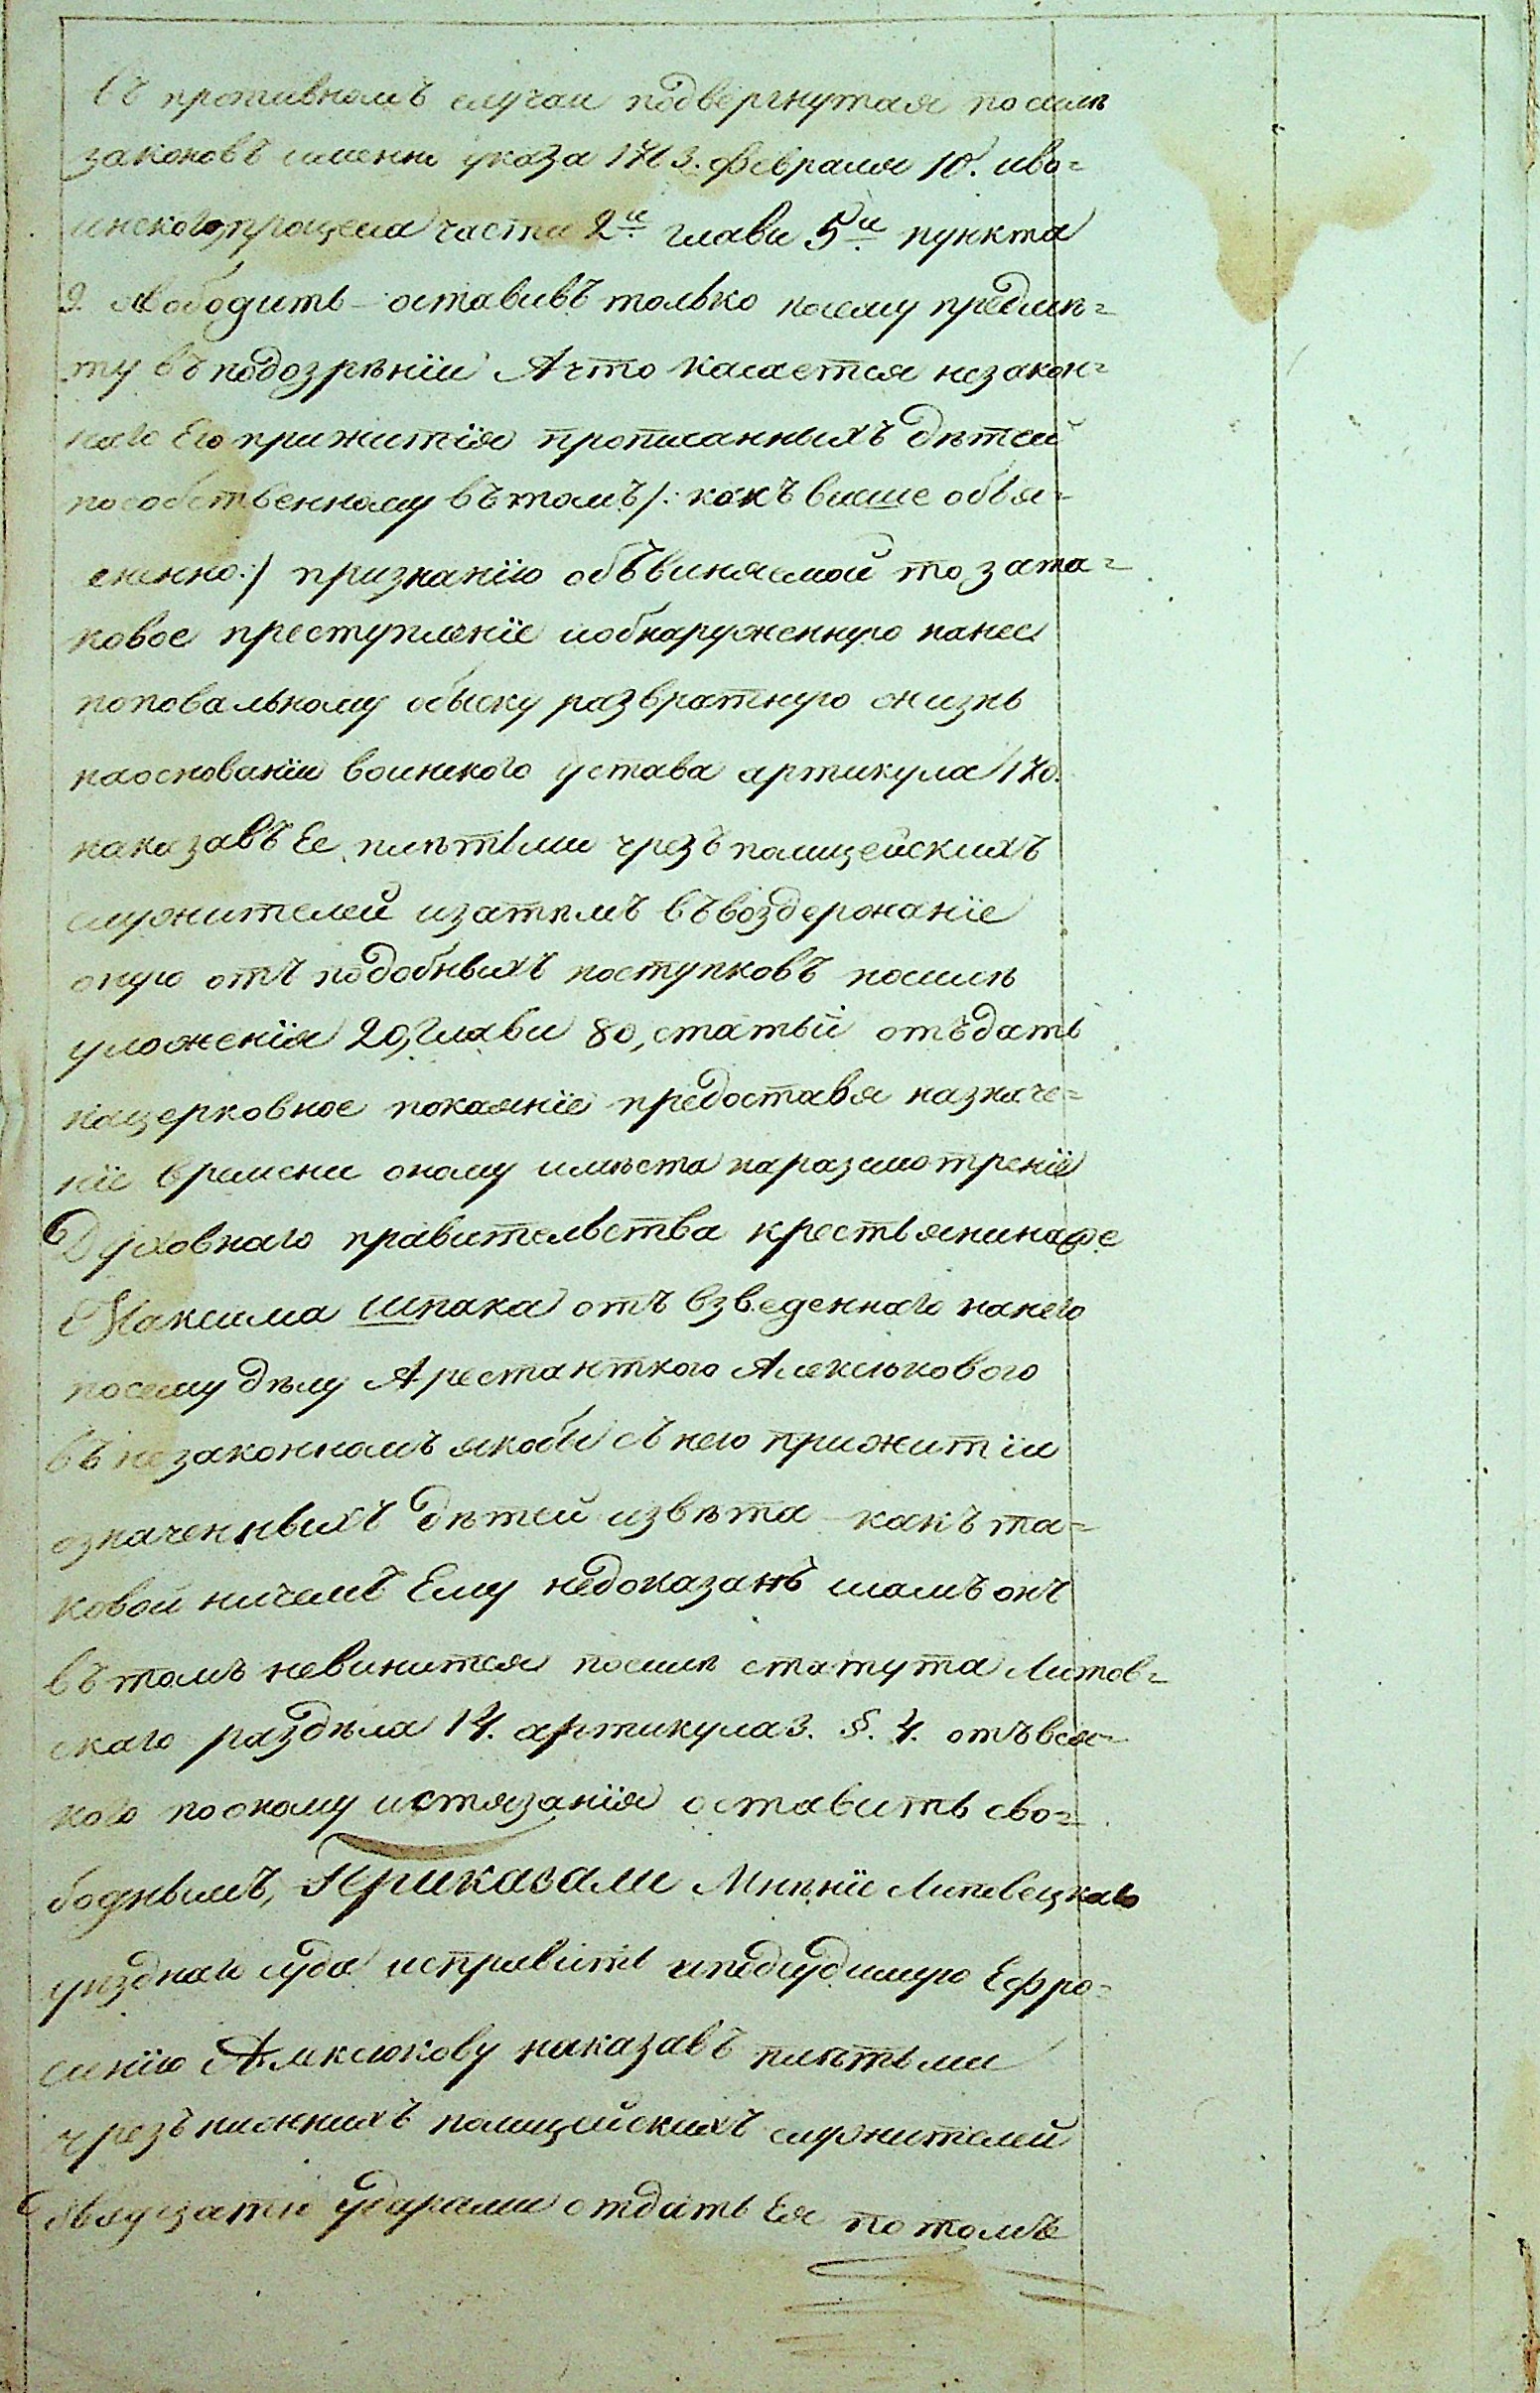 въ противномъ случаи подвергнутая по силѣ
законовъ имянно указа 1763. Февраля 10. иво-
инского процеса части 2й главы 5й пункта
9. свободить оставивъ только посему предмѣ-
ту въ подозрѣніи А что касается незакон-
наго Его прижитія прописанныхъ дѣтей
пособственному вътомъ /: какъ выше объя-
сненно :/ признанію объвиняемой то зата-
ковое преступленіе иобнаруженную нанес
поповальному обыску развратную жизнь
наоснованіи воинского устава артикула 170.
наказавъ Ее плѣтьми чрезъ полицейскихъ
служителей изатѣмъ въвоздержаніе
оную отъ подобныхъ поступковъ посилѣ
уложенія 20, главы 80, статьи отъдать
нацерковное покаяніе предоставя назначе-
ніе времени оному имѣста наразсмотреніе
Духовнаго правительства крестьянинаже
Максима Шпака отъ взведеннаго нанего
посему дѣлу Арестанткою Алексюковою
въ незаконномъ якобы съ нею прижитіи
означенныхъ дѣтей извѣта какъ та-
ковой ничемъ Ему недоказанъ исамъ онъ
въ томъ невинится посилѣ статута Литов-
скаго раздѣла 14. артикула 3. §. 4. отъ вся-
кого по оному истязанія оставить сво-
боднымъ, Приказали Мнѣніе Липовецкаго
уѣзднаго суда исправить иподсудимую Ефро-
синію Алексюкову наказавъ плѣтьми
чрезъ нижнихъ полицейскихъ служителей
двадцатю ударами отдать Ея потомъ